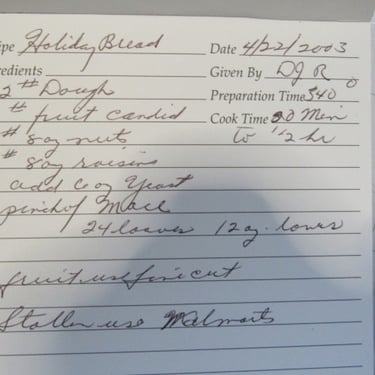 ipe Holiday Bread Date 4/22/2003
redients Given By DJ R
2# Dough Preparation Time 340°
# fruit candid Cook Time 30 Min
# 8 oz nuts to 1/2 hr
# 8 oz raisins
add 6 oz Yeast
pinch of Mace
24 loaves 12 oz. loaves
fruit use fine cut
Stollen use Walmarts